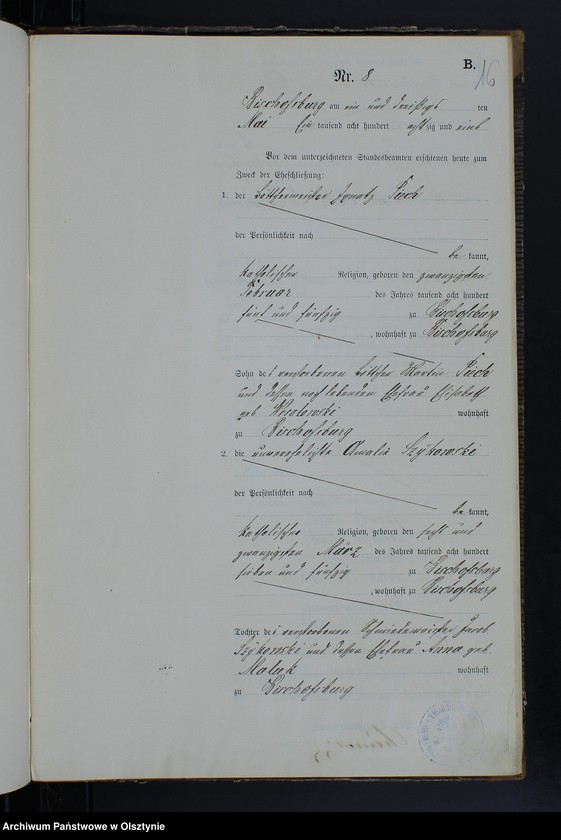 B.
16
Nr. 8
Bischofsburg am ein und dreißigsten
Mai Ein tausend acht hundert achtzig und eins
Vor dem unterzeichneten Standesbeamten erschienen heute zum
Zweck der Eheschließung:
1. der Böttchermeister Ignatz
der Persönlichkeit nach
be kannt,
katholischer Religion, geboren den zwanzigsten
Februar des Jahres tausend acht hundert
fünf und fünfzig zu Bischofsburg
, wohnhaft zu Bischofsburg
Sohn des verstorbenen Böttcher Martin
und dessen noch lebenden Ehefrau Elisabeth
geb wohnhaft
zu Bischofsburg
2. die unverehelichte Amalie Szykowski
der Persönlichkeit nach
be kannt,
katholischer Religion, geboren den sechs und
zwanzigsten März des Jahres tausend acht hundert
sieben und fünfzig zu Bischofsburg
, wohnhaft zu Bischofsburg
Tochter des verstorbenen Schmiedemeister Jacob
Szykowski und dessen Ehefrau Anna geb
wohnhaft
zu Bischofsburg
Archiwum Państwowe w Olsztynie